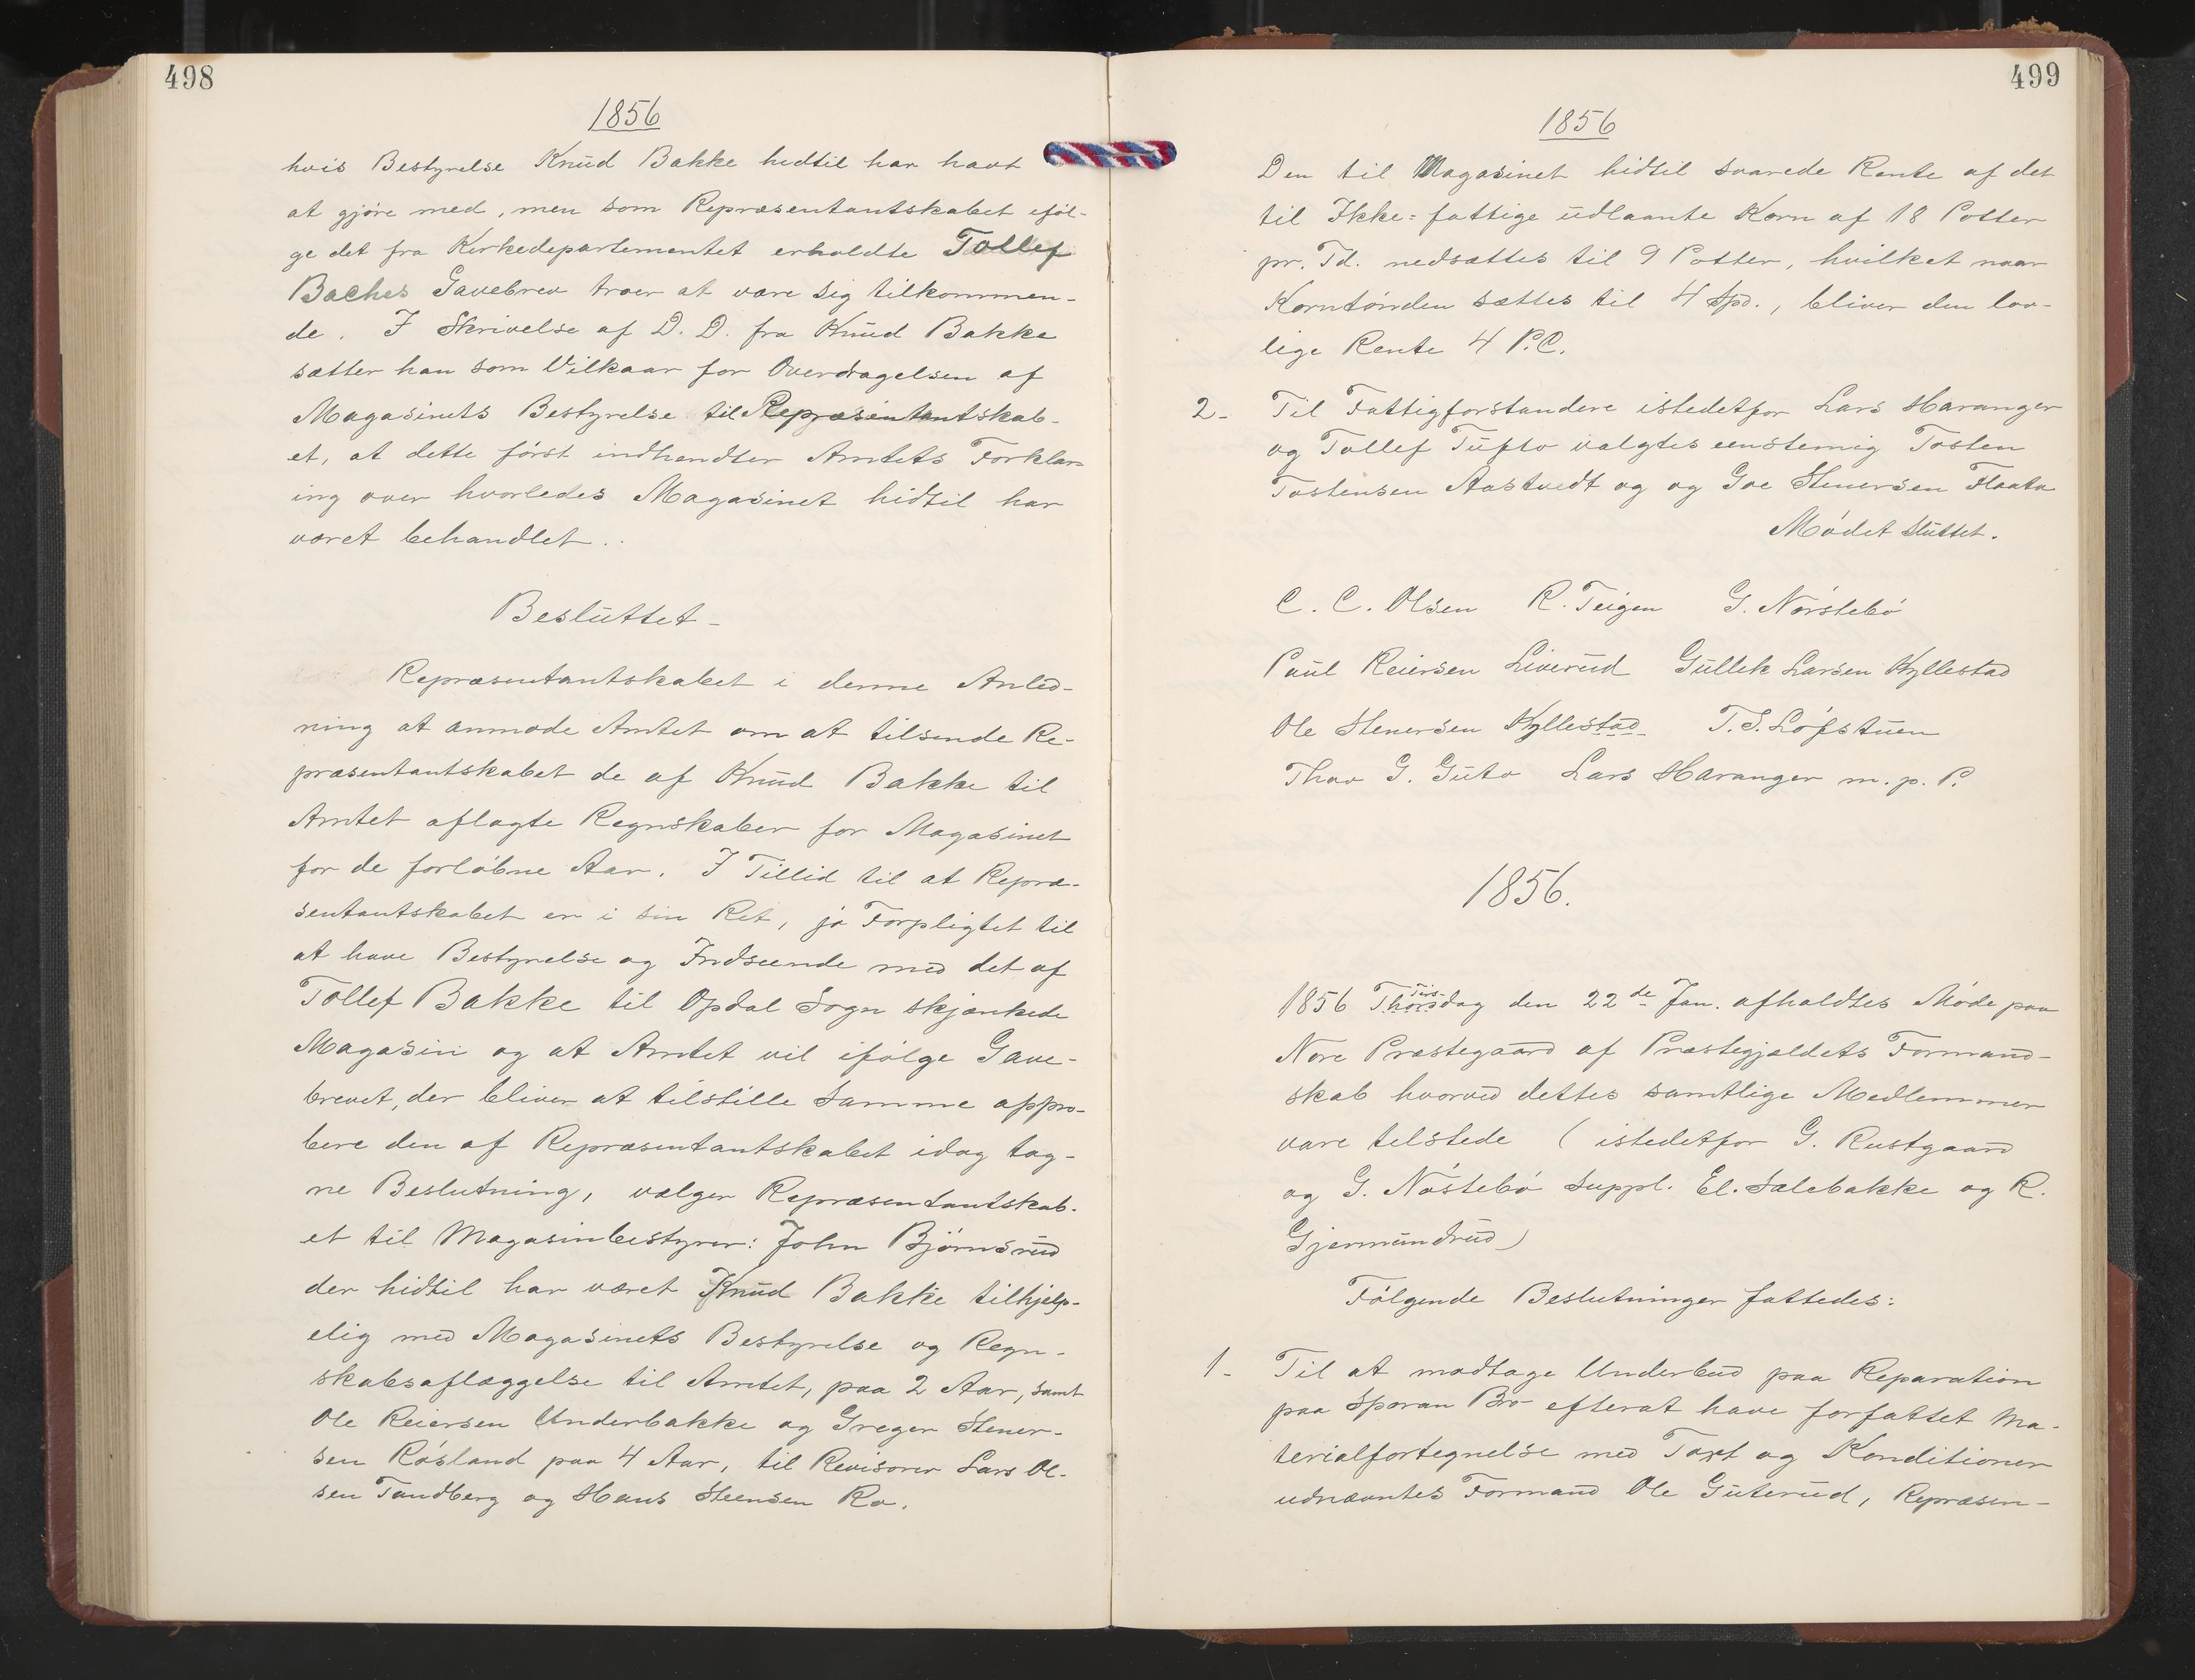 498
1856
hvis Bestyrelse Knud Bakke hidtil har havt
at gjøre med, men som Repræsentantskabet iføl-
ge det fra Kirkedepartementet erholdte Tollef
Baches Gavebrev troer at være sig tilkommen-
de. I Skrivelse af D. D. fra Knud Bakke
sætter han som Vilkaar for Overdragelsen af
Magasinets Bestyrelse til Repræsentantskab-
et, at dette først indhendter Amtets Forklar-
ing over hvorledes Magasinet hidtil har
været behandlet..
Besluttet-
Repræsentantskabet i denne Anled-
ning at anmode Amtet om at tilsende Re-
præsentantskabet de af Knud Bakke til
Amtet aflagte Regnskaber for Magasinet
for de forløbne Aar. I Tillid til at Repræ-
sentantskabet er i sin Ret, ja Forpligtet til
at have Bestyrelse og Indseende med det af
Tollef Bakke til Opdal Sogn skjænkede
Magasin og at Amtet vil ifølge Gave-
brevet, der bliver at tilstille Samme appro-
bere den af Repræsentantskabet idag tag-
ne Beslutning, vælger Repræsentantskab-
et til Magasinbestyrer: John Bjørnsrud
der hidtil har været Knud Bakke tilhjelp-
elig med Magasinets Bestyrelse og Regn-
skabsaflæggelse til Amtet, paa 2 Aar, samt
Ole Reiersen Underbakke og Greger Stener-
sen Røsland paa 4 Aar, til Revisorer Lars Ol-
sen Tandberg og Hans Steensen Ro.
499
1856
Den til Magasinet hidtil svarede Rente af det
til Ikke=fattige udlaante Korn af 18 Potter
pr. Td. nedsættes til 9 Potter, hvilket naar
Korntønden sættes til 4 Spd., bliver den lov-
lige Rente 4 P.C.
2- Til Fattigforstandere istedetfor Lars Haranger
og Tollef Tufto valgtes eenstemig Tosten
Tostensen Aastvedt og og Goe Stenersen Flaata
Mødet Sluttet.
C. C. Olsen R. Teigen G. Nørstebø
Paul Reiersen Liverud Gullek Larsen Kyllestad
Ole Stenersen Kyllestad- T. S. Løfstuen
Thov G. Guto Lars Haranger m. p. P.
1856.
1856 Thorsdag den 22de Jan. afholdtes Møde paa
Tirs-
Nore Præstegaard af Præstegjeldets Formand-
skab hvorved dettes samtlige Medlemmer
vare tilstede (istedetfor G. Rustgaard
og G. Nøstebø Suppl. El. Sælebakke og R.
Gjermundrud)
Følgende Beslutninger fattedes:
1- Til at modtage Underbud paa Reparation
paa Sporan Bro efterat have forfattet Ma-
terialfortegnelse med Taxt og Konditioner
udnævntes Formand Ole Guterud, Repræsen-